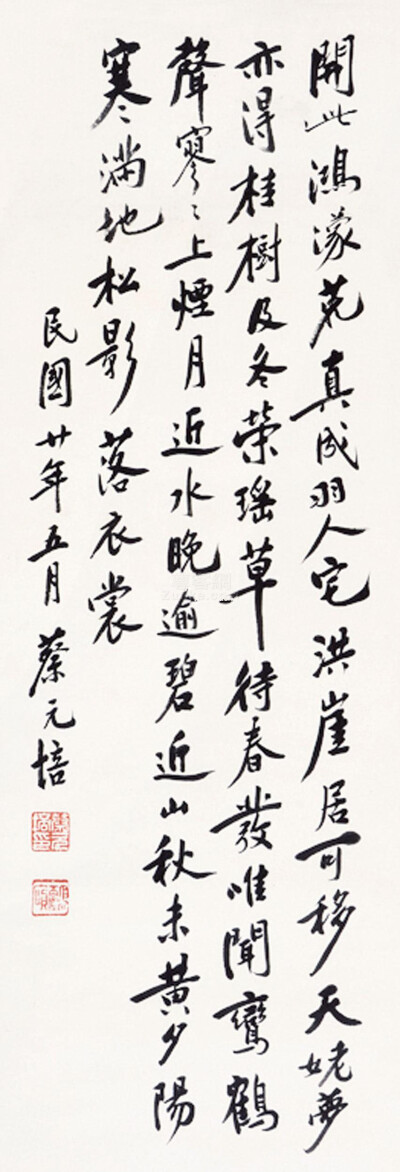 開此鴻濛荒真成羽人宅洪崖居可移天姥夢
亦得桂樹及冬榮瑤草待春發唯聞鸞鶴
聲寥〻上煙月近水晚逾碧近山秋未黃夕陽
寒滿地松影落衣裳
民國廿年五月蔡元培